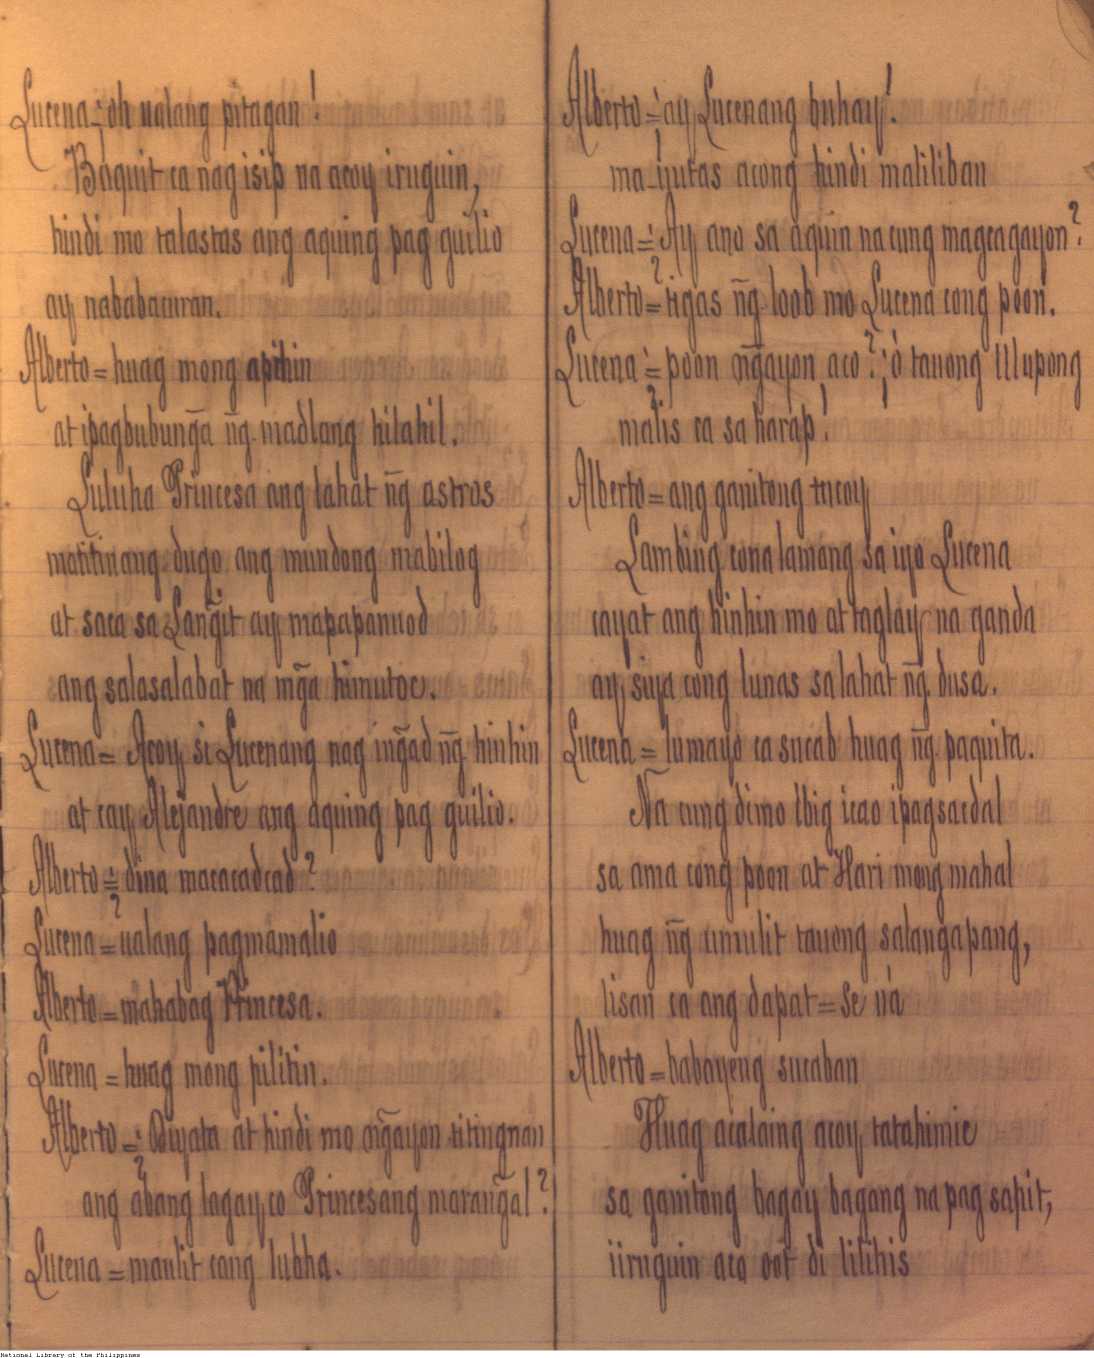 Lucena = ¡oh ualang pitagan!
Baquit ca nag isip na acoy iruguin,
hindi mo talastas ang aquing pag guilio
ay nababauran.
Alberto = huag mong apihin
at ipagbubung̃a n͠g madlang hilahil.
Luluha Princesa ang lahat n͠g astros
matitinang dugo ang mundong mabilog
at saca sa Lang̃it ay mapapanuod
ang salasalabat na mg̃a himutoc.
Lucena = Acoy si Lucenang nag ing̃ad n͠g hinhin
at cay Alejandre ang aquing pag guilio.
Alberto = ¿dina macacadcad?
Lucena = ualang pagmamalio
Alberto = mahabag Princesa.
Lucena = huag mong pilitin.
Alberto = ¿Diyata at hindi mo ng̃ayon titingnan
ang abang lagay co Princesang marang̃al?
Lucena = maulit cang lubha.
Alberto = ¡ay Lucenang buhay!
ma-yutas acong hindi maliliban
Lucena = ¿Ay ano sa aquin na cung magcagayon?
Alberto = tigas n͠g loob mo Lucena cong poon.
Lucena = ¿poon ng̃ayon aco? ¡ó tauong Ulupong
malis ca sa harap!
Alberto = ang ganitong tucoy
Lambing cona lamang sa iyo Lucena
cayat ang hinhin mo at taglay na ganda
ay siya cong lunas sa lahat n͠g dusa.
Lucena = lumayo ca sucab huag n͠g paquita.
Na cung dimo ibig icao ipagsacdal
sa ama cong poon at Hari mong mahal
huag n͠g umulit tauong salangapang,
lisan ca ang dapat = Se va
Alberto = babayeng sucaban
Huag acalaing acoy tatahimic
sa ganitong bagay bagang na pag sapit,
iiruguin aca oot di lilihis